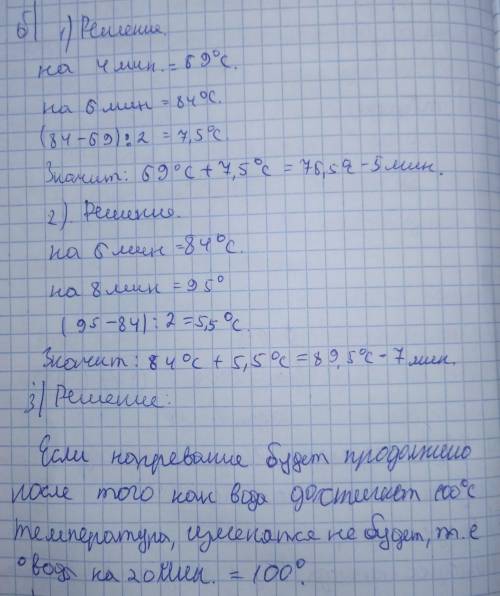 б) 1) Решение.
на 4 мин. = 69°С.
на 6 мин = 84°С.
(84-69):2 = 7,5°С.
Значит: 69°С + 7,5°С = 76,5 - 5 мин.
2). Решение.
на 6 мин = 84°С.
на 8 мин = 95°
(95-84):2 = 5,5°С.
Значит: 84°С + 5,5°С = 89,5°С - 7 мин.
3) Решение:
Если нагревание будет продолжено
после того как вода достигнет 100°С
температура, изменатся не будет, т.е
вода на 20 мин. = 100°.